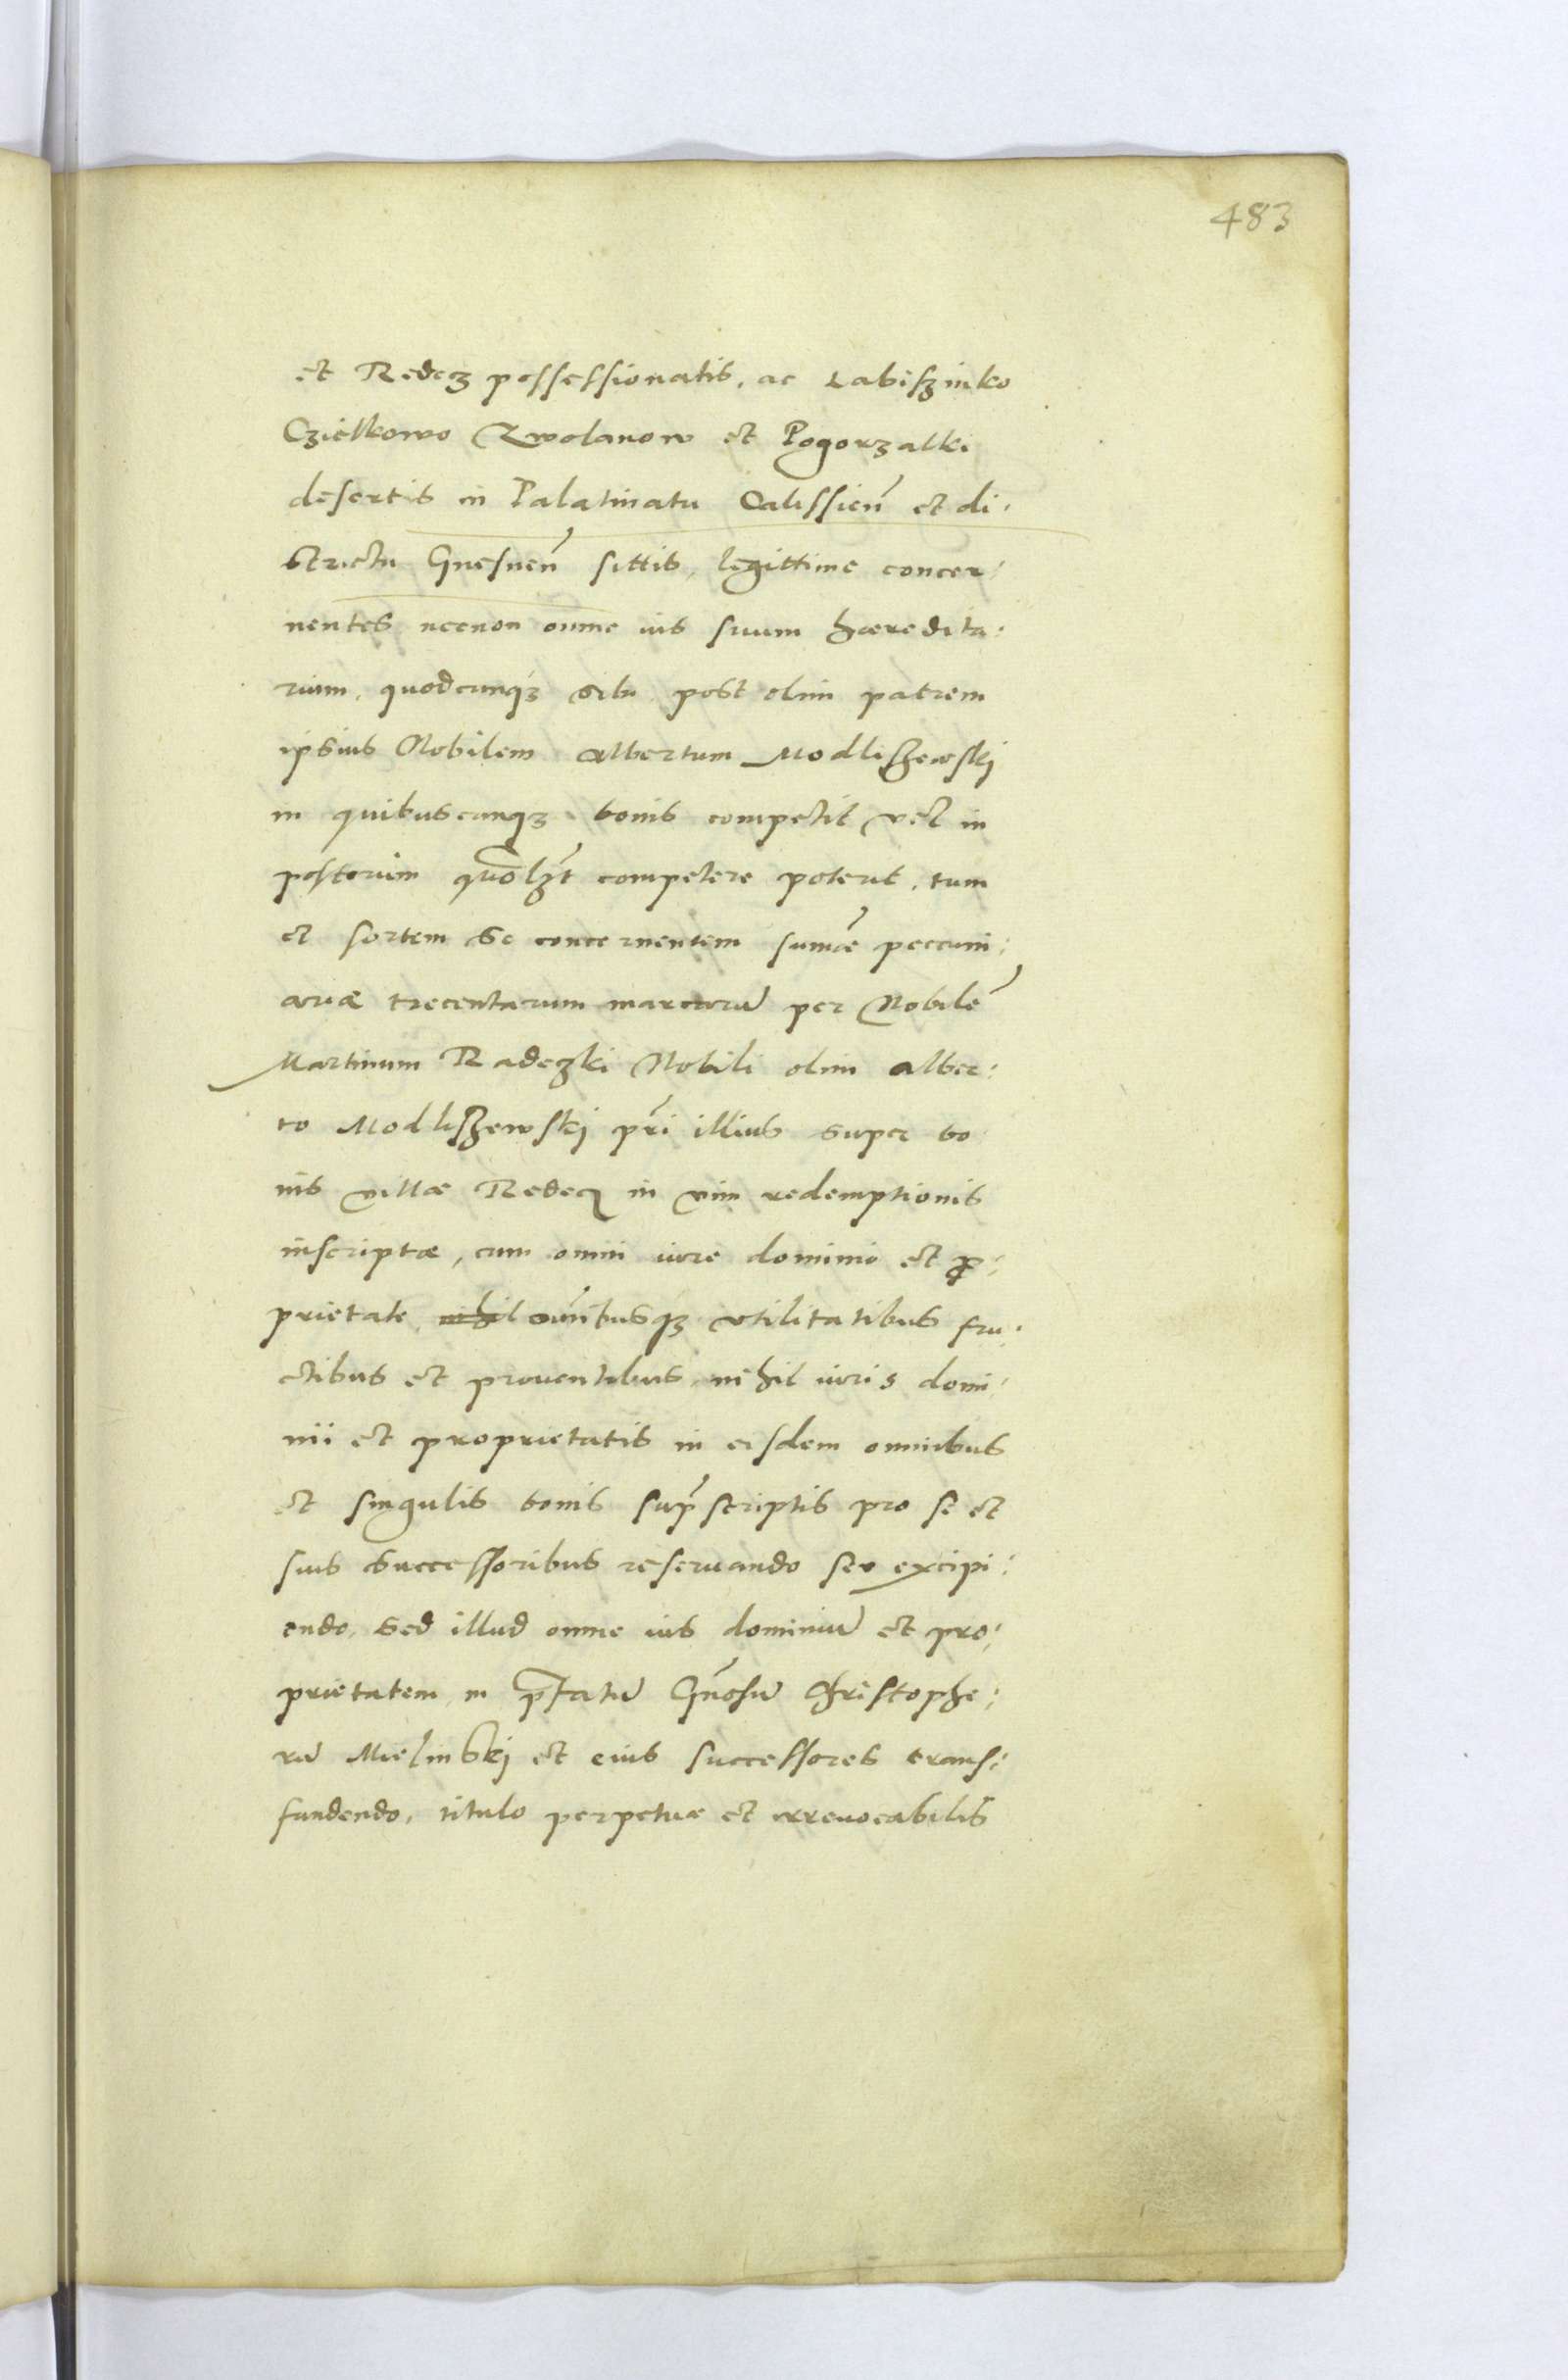 483
et Redecz possessionatis, ac Labiszinko
Czielkowo Zwolanow et Pogorzalki
desertis in Palatinatu Calissien̄ et di:
strictu Gnesnen̄ sittis, legittime concer:
nentes necnon omne ius suum hæredita:
rium, quodcunqꝫ sibi post olim patrem
ipsius Nobilem Albertum Modliszewskj
in quibuscunqꝫ bonis competit vel in
posterum quōlꝫt competere poterit, tum
et sortem se concernentem sum̄æ peccuni:
ariæ trecentarum marcarū per Nobilē
Martinum Radeczki Nobili olim Alber:
to Modliszewskj pr̄i illius super bo
nis villæ Redecz in vim redemptionis
inscriptæ, cum omni iure dominio et ꝓ:
prietate, nihil om̄ibusqꝫ vtilitatibus fru:
ctibus et prouentibus, nihil iuris domi:
nii et proprietatis in eisdem omnibus
et singulis bonis sup̄scriptis pro se et
suis successoribus reseruando seu excipi:
endo, sed illud omne ius dominiū et pro:
prietatem in p̄fatū Gn̄osū Christopho:
rū Mielinskj et eius successores trans:
fundendo, titulo perpetuæ et irreuocabilis